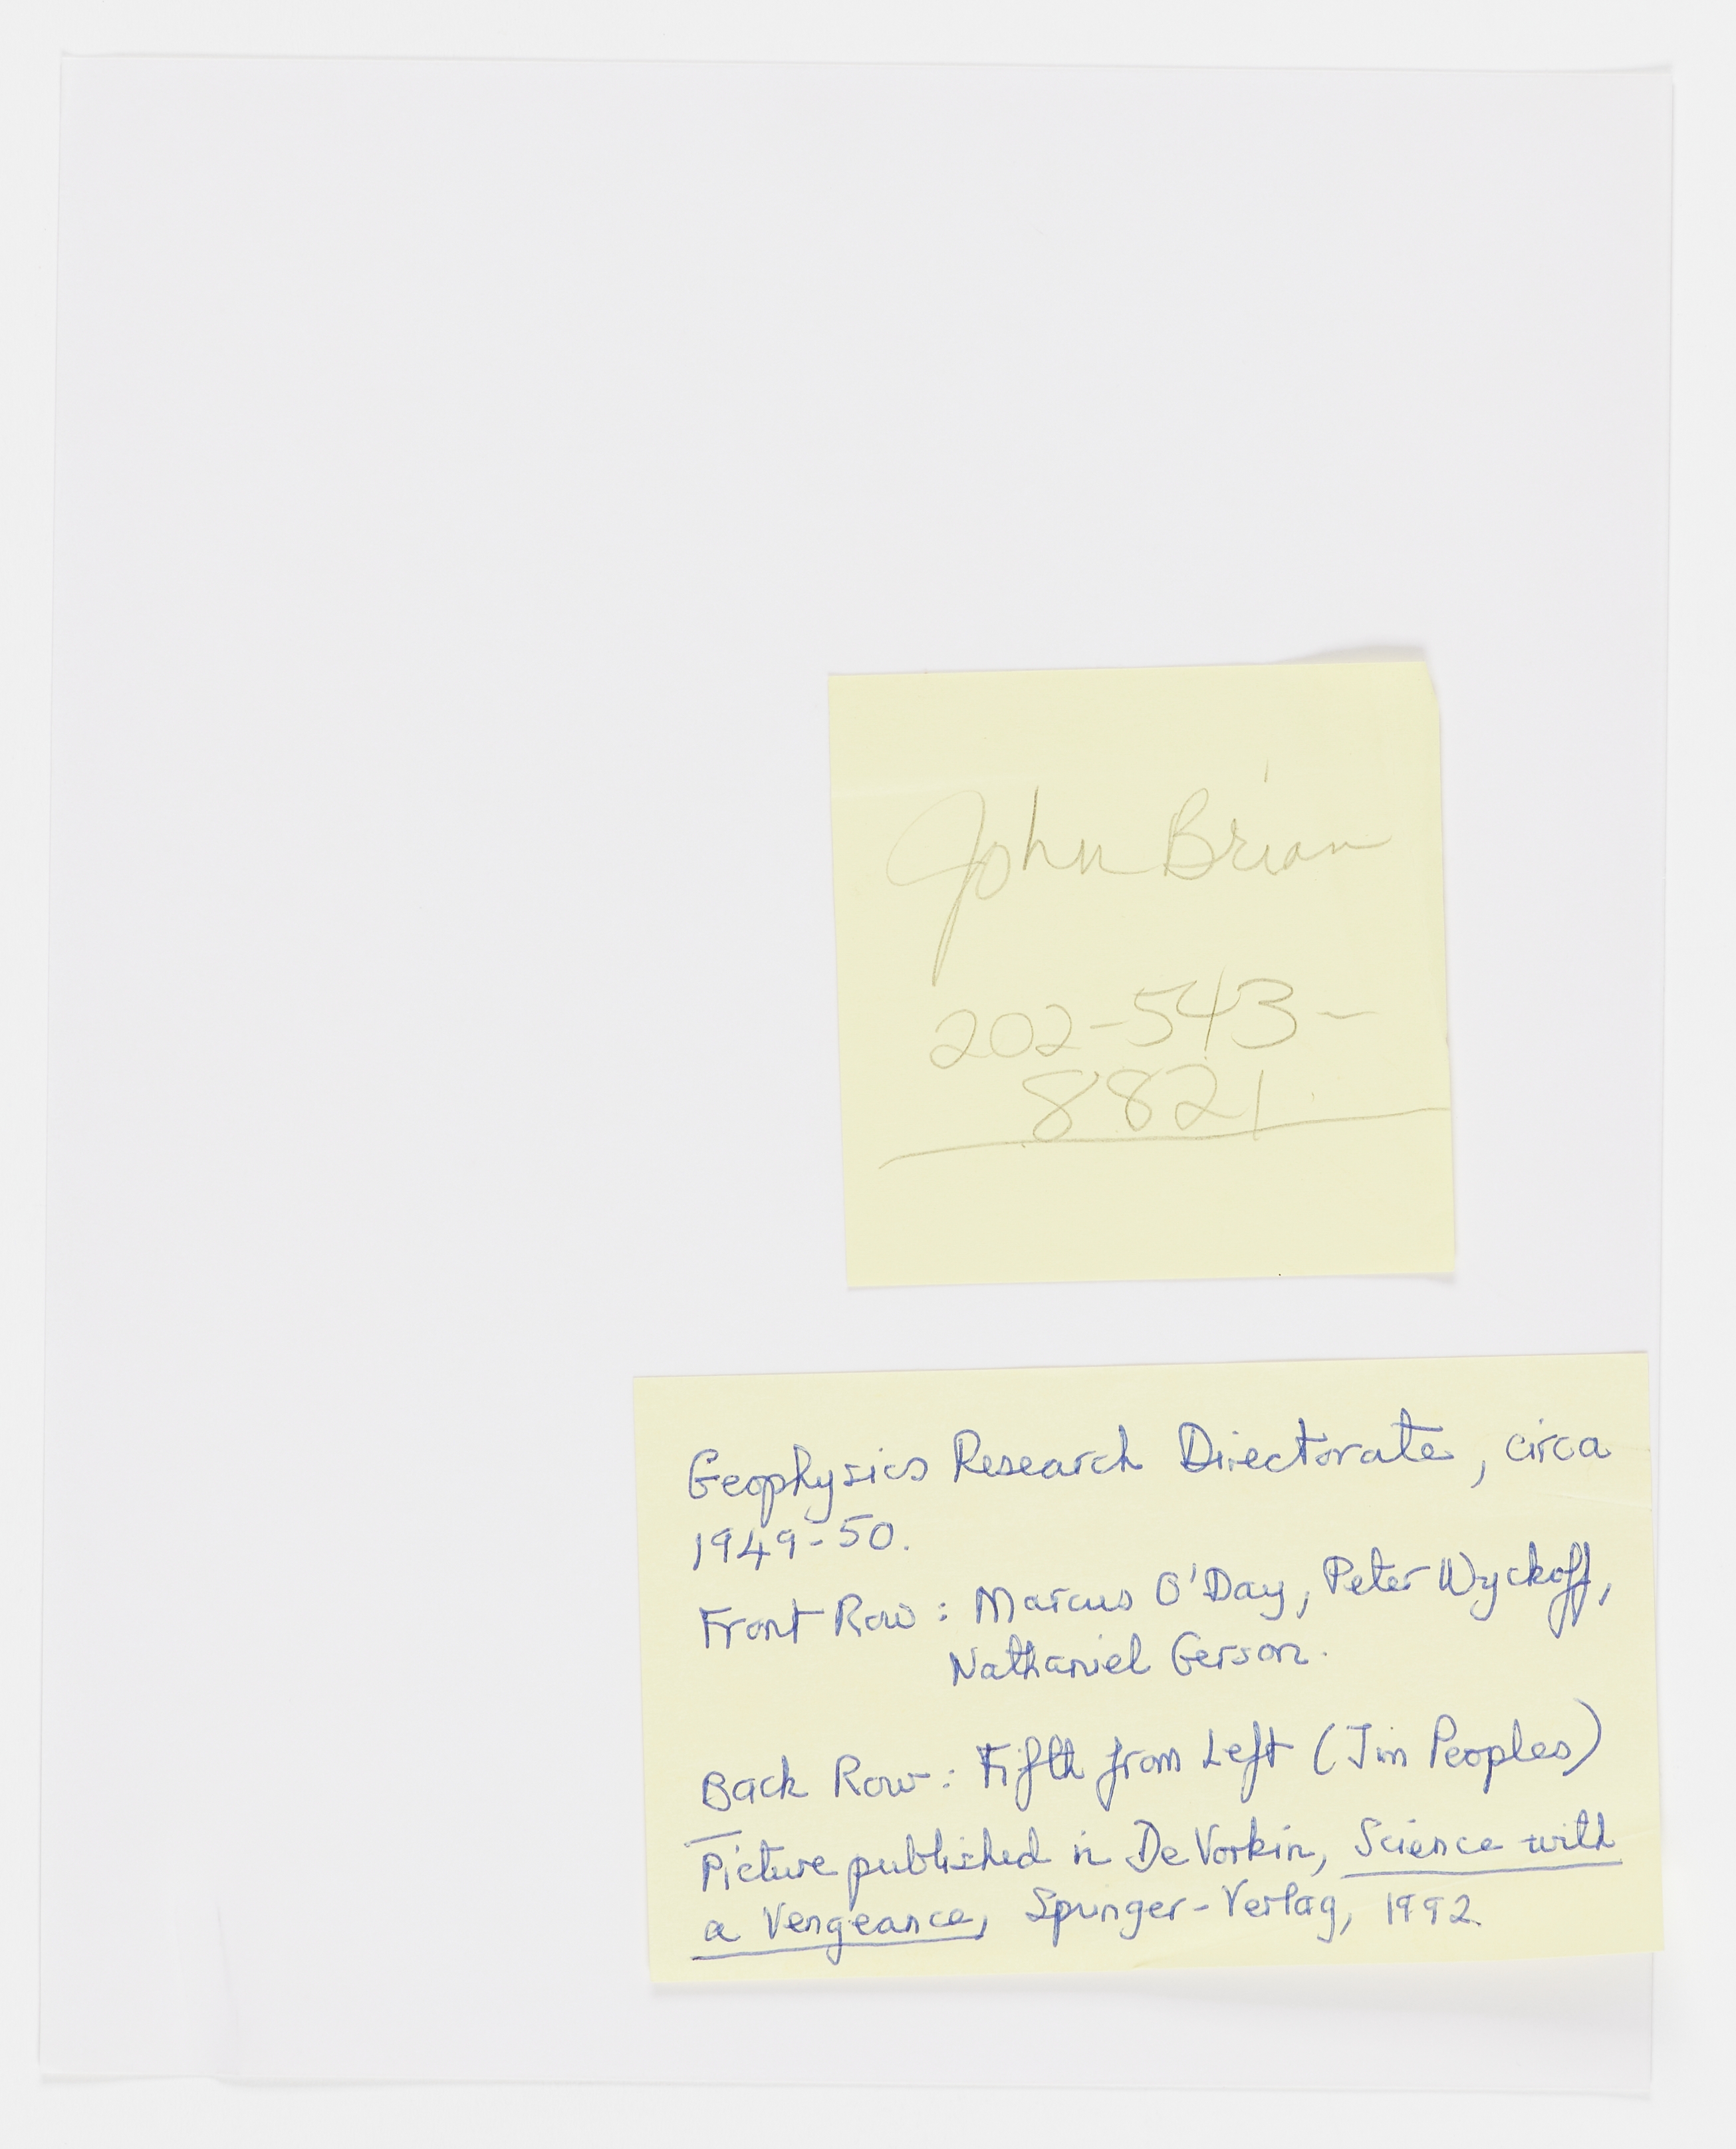 John Brian
202-543-
8821
Geophysics Research Directorate, circa
1949-50.
Front Row: Marcus O'Day, Peter Wyckoff,
Nathaniel Gerson.
Back Row: Fifth from Left (Jim Peoples)
Picture published in DeVorkin, Science with
a Vengeance, Springer-Verlag, 1992.